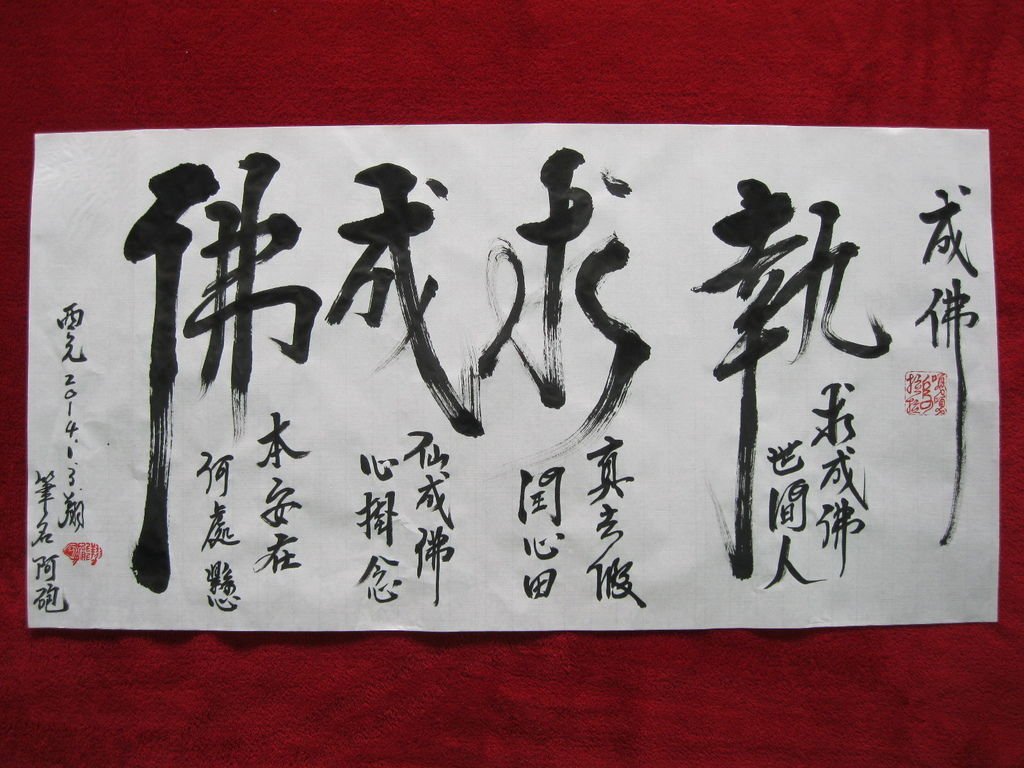 成佛
執求成佛
求成佛
世間人
真去假
潤心田
仙成佛
心掛念
本安在
何處懸
西元2014.1.3翔
筆名阿砲